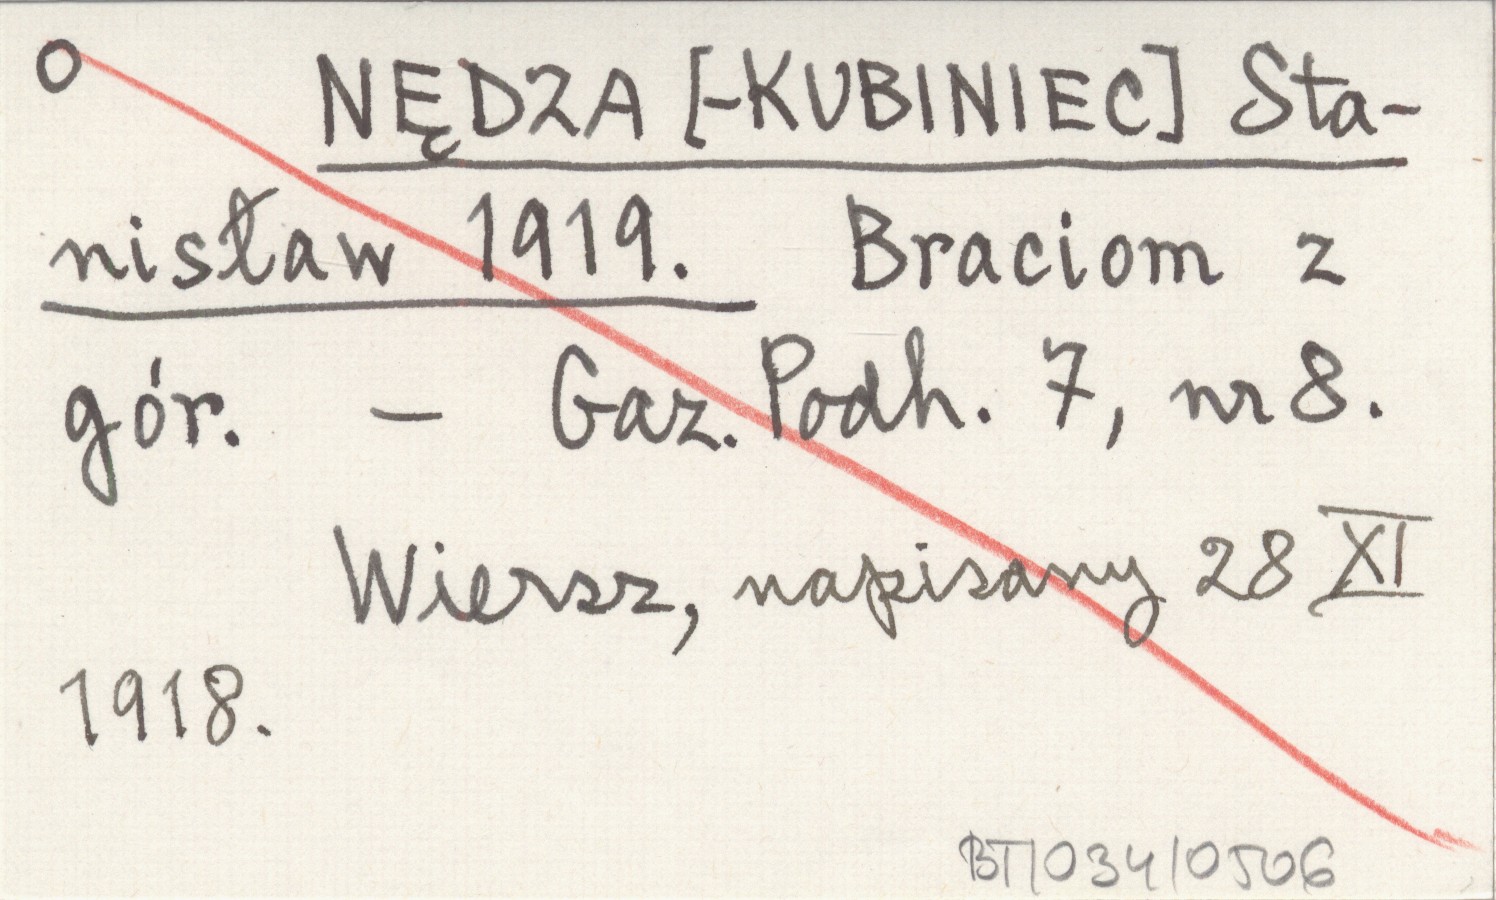 O NĘDZA [-KUBINIEC] Sta-
nisław 1919. Braciom z
gór. – Gaz. Podh. 7, nr 8.
Wiersz, napisany 28 XI
1918.
BT/034/0506